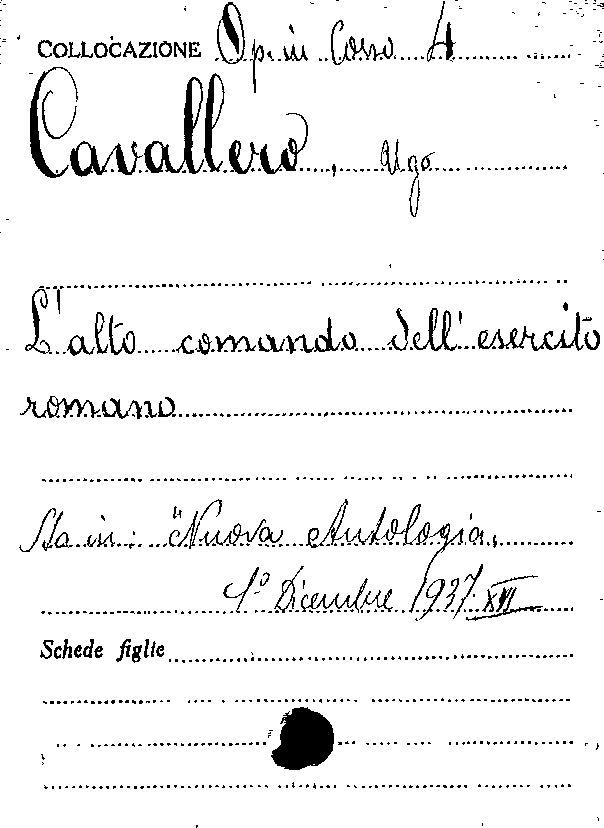 COLLOCAZIONE Op. in Corso 4
Cavallero, Ugo
L'alto comando dell'esercito
romano
Sta in: "Nuova Antologia,
1º Dicembre 1937 XVI
Schede figlie